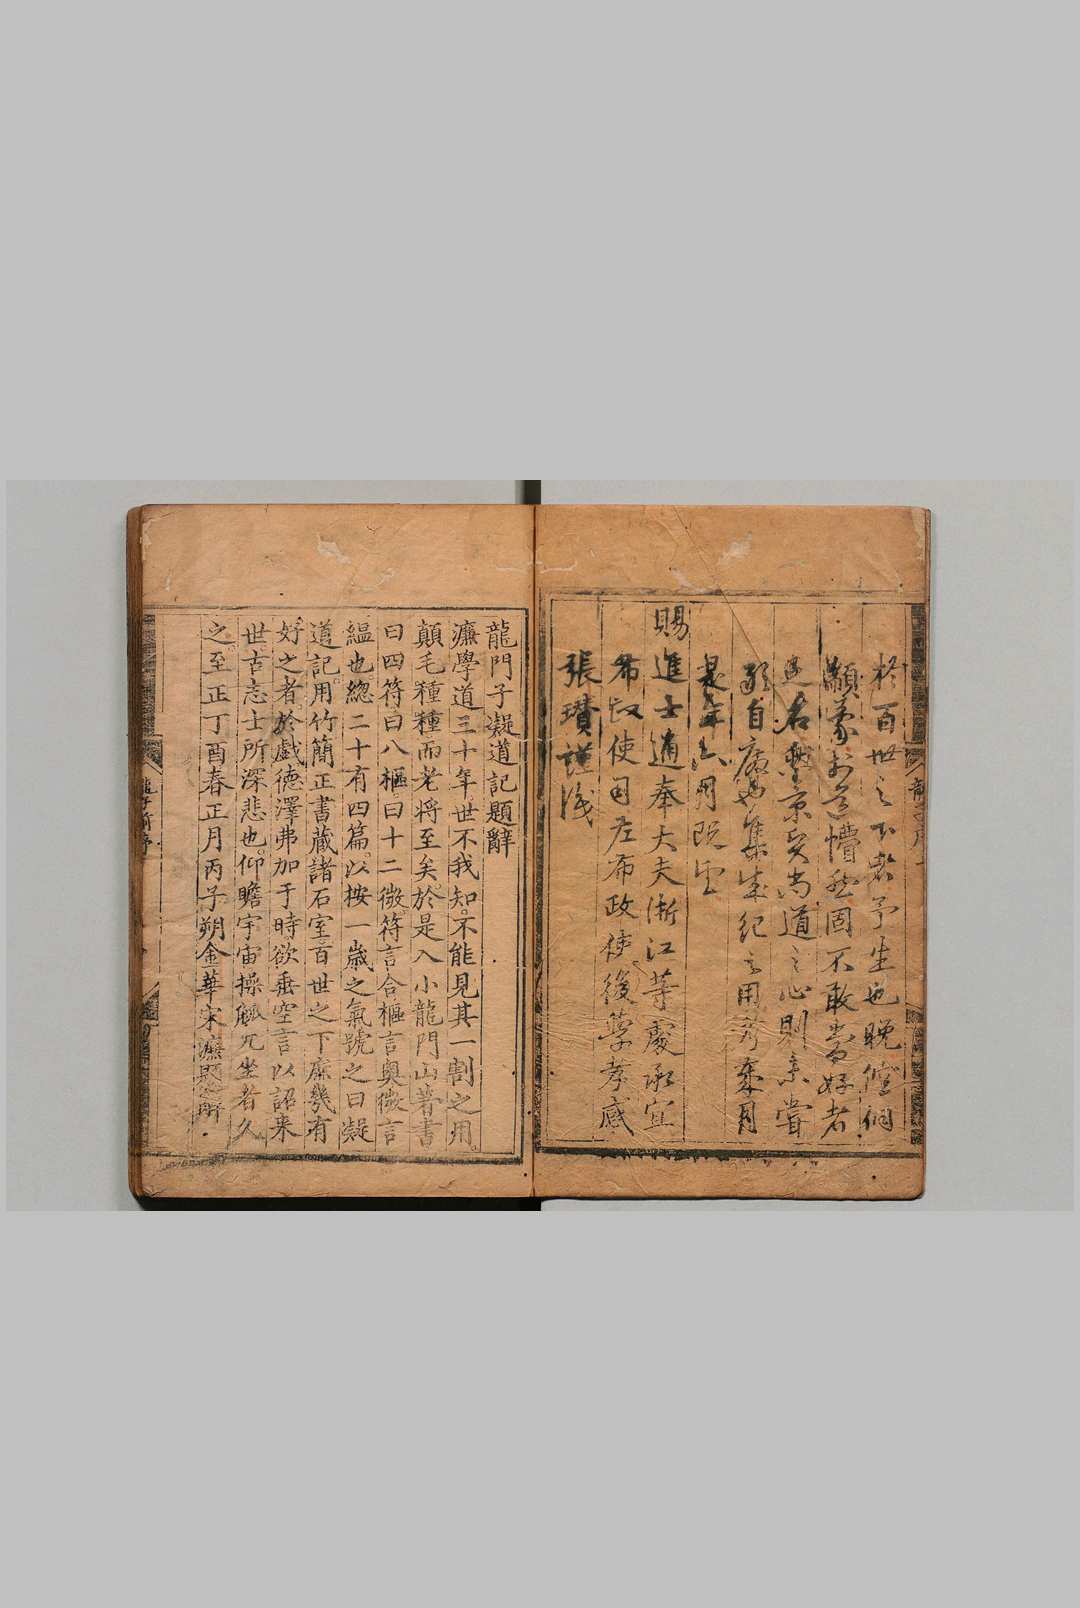 於百世之下者予生也晚儻侗
顓蒙於道懵然固不敢當好者
是年六月既望
賜進士通奉大夫浙江等處承宣
布政使司左布政使後學孝感
張瓚謹識
龍門子凝道記題辭
濂學道三十年世不我知不能見其一割之用
顛毛種種而老將至矣於是入小龍門山著書
曰四符曰八樞曰十二微符言合樞言奧微言
緼也總二十有四篇以按一歲之氣號之曰凝
道記用竹簡正書藏諸石室百世之下庶幾有
好之者於戲德澤弗加于時欲垂空言以詔来
世古志士所深悲也仰瞻宇宙操觚兀坐者久
之至正丁酉春正月丙子朔金華宋濂題辭